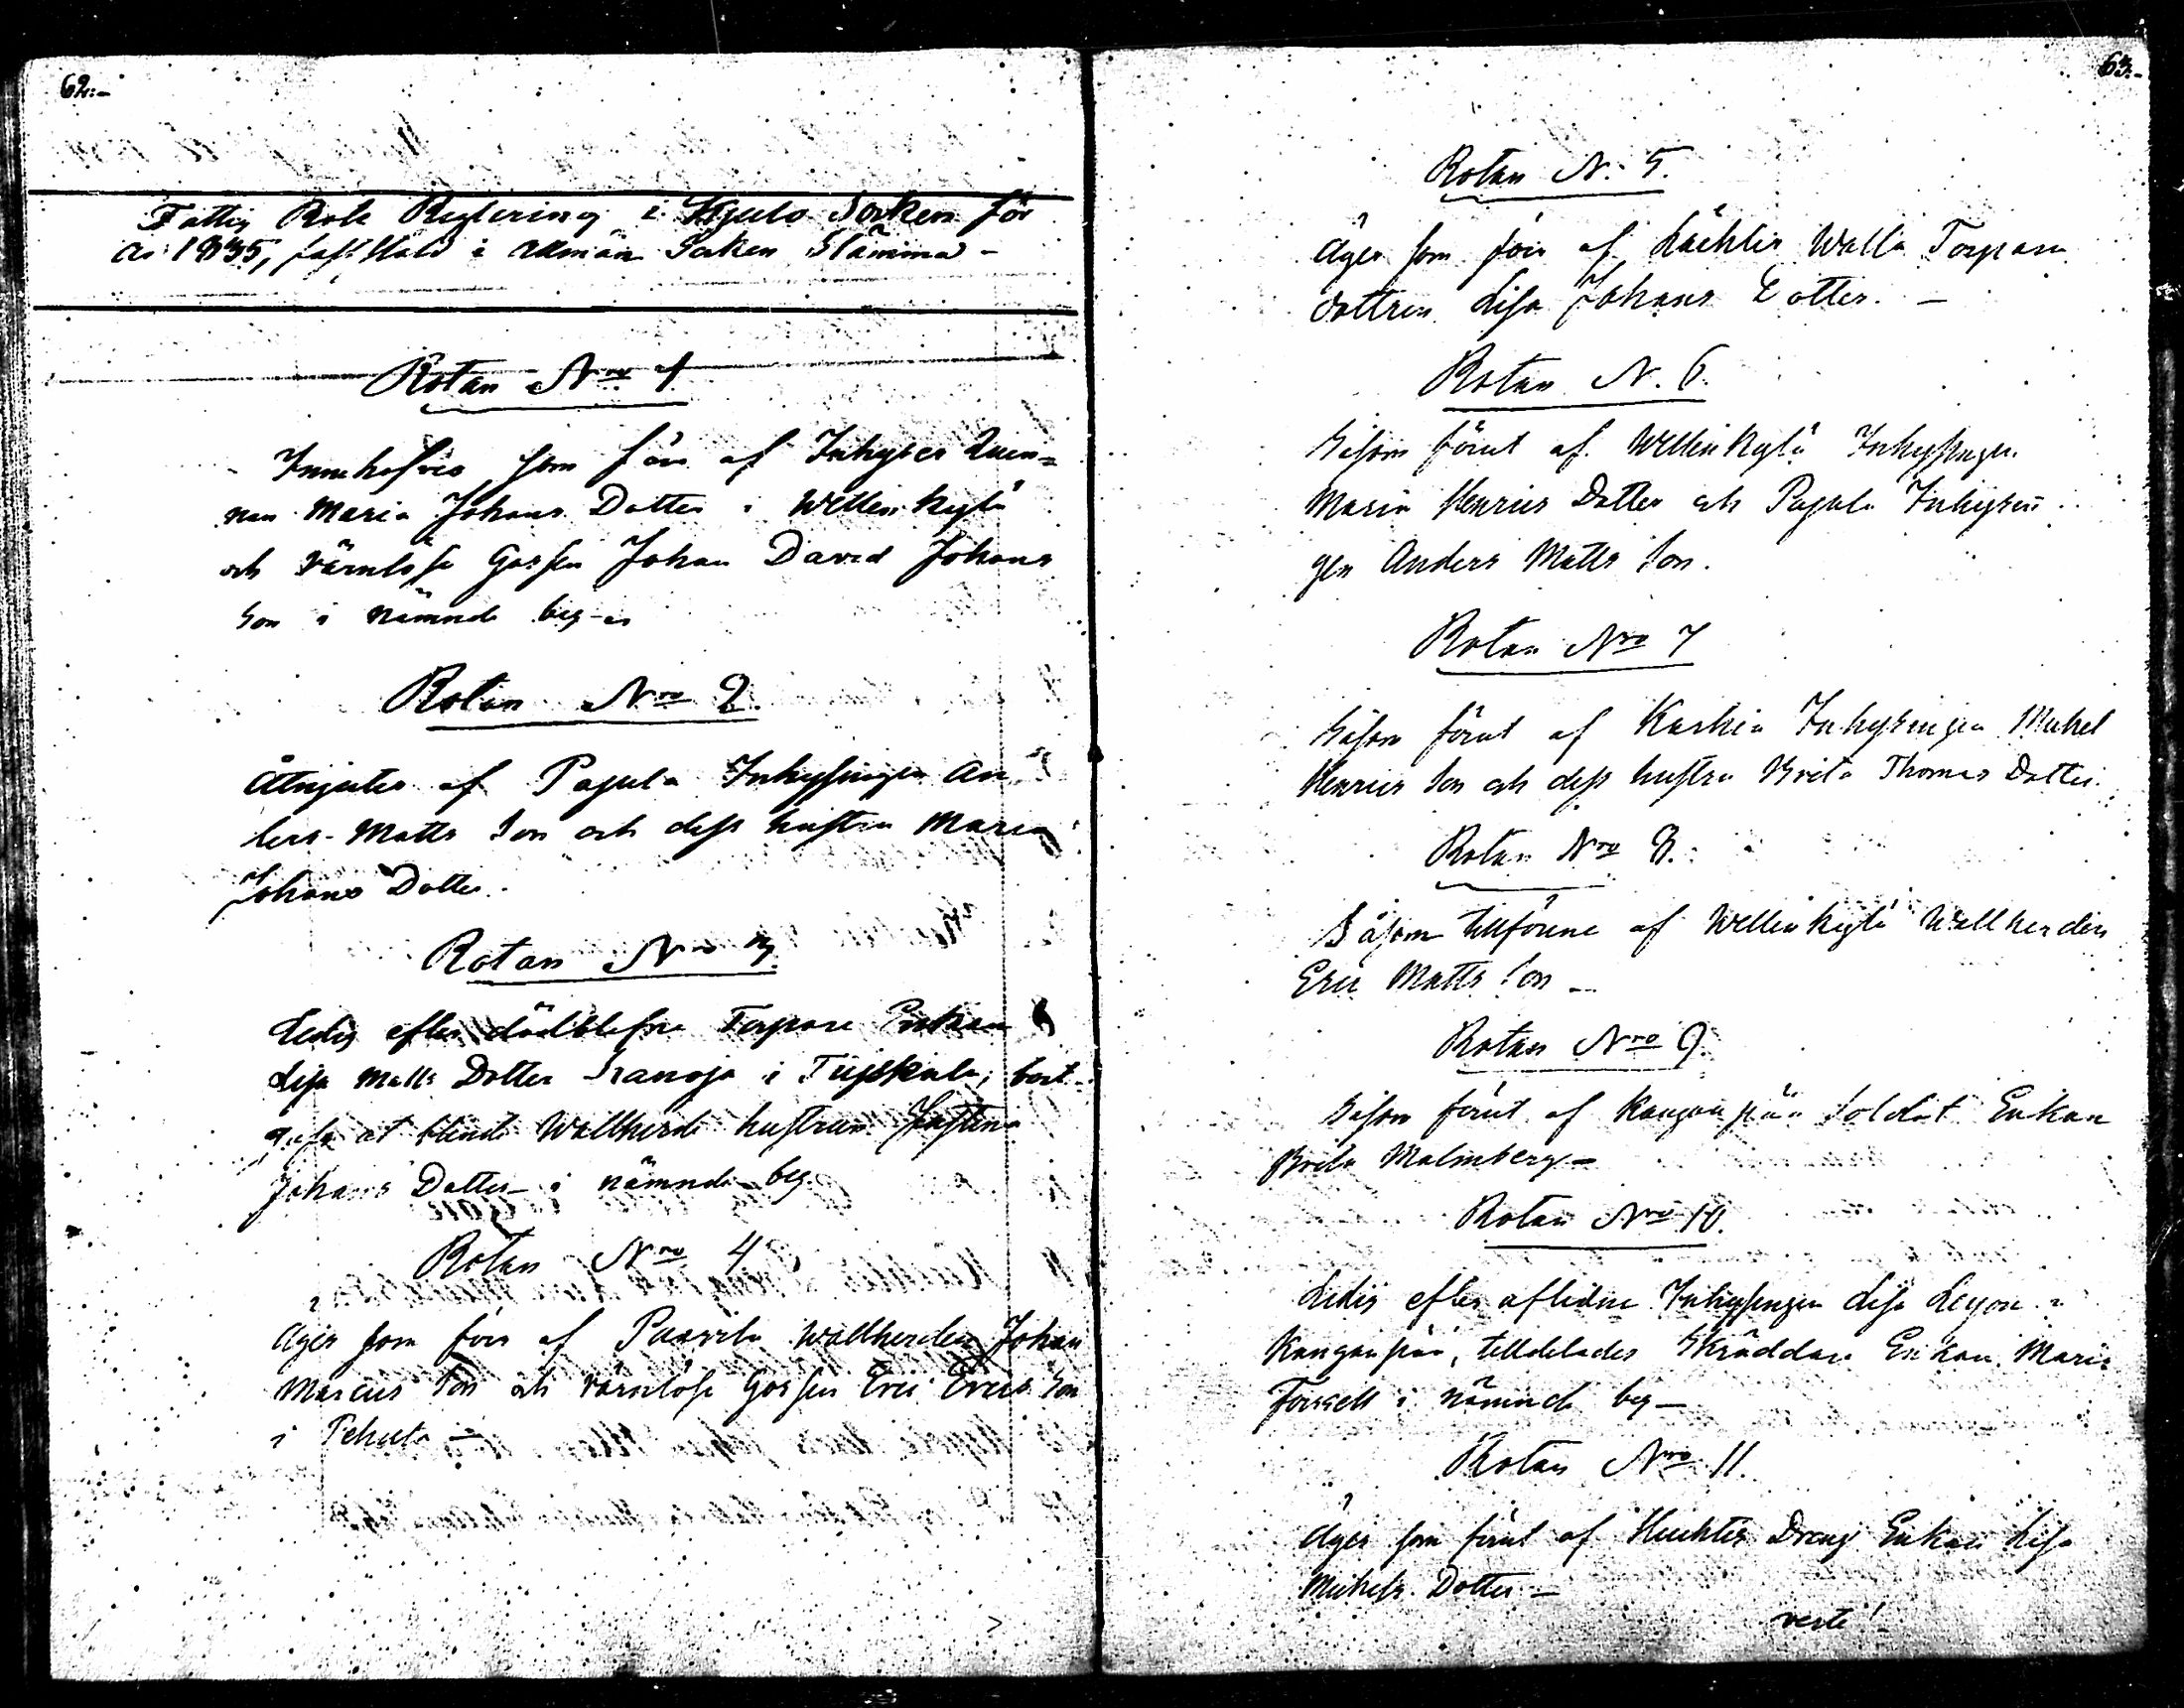 62.-
Fattig Rote Reglering i Kjulo Socken för
år 1835, fastställd i allmän Socken Stämma -
Rotan Nro 1
Innehafves som förr af Inhyses Quin=
nan Maria Johans Dotter i Wellinkylä
och värnlösa Gossen Johan David Johans
Son i nämnde by -
Rotan Nro 2.
Åtnjutes af Pajula Inhysingen An
ders Matts Son och dess hustru Maria
Johans Dotter.
Rotan Nro 3.
Ledig efter dödblefne Torpare Enkan
Lisa Matts Dotter i Tujskala, bort
gafs åt blinde Wallherde hustrun Justina
Johans Dotter i nämnde by.
Rotan Nro 4
Äges som förr af Paavila Wallherden Johan
Marcus Son och värnlösa Gossen Eric Erics Son
i
Rotan N. 5.
Äges som förr af Torpare
dottren Lisa Johans Dotter. -
Rotan N. 6.
Såsom förut af Wellinkylä Inhysingen
Maria Henrics Dotter och Pajula Inhysin
gen Anders Matts Son.
Rotan Nro 7
Såsom förut af Karhia Inhysingen Michel
Henrics Son och dess hustru Brita Thomas Dotter.
Rotan Nro 8.
Såsom tillförene af Wellinkylä Wallherden
Eric Matts Son -
Rotan Nro 9.
Såsom förut af Kanganpää Soldat Enkan
Brita Malmberg -
Rotan Nro 10.
Ledig efter aflidne Inhysingen Lisa Leyon i
Kanganpää, tilldelades Skräddare Enkan Maria
Forssell i nämnde by -
Rotan Nro 11.
Äges som förut af Dreng Enkan Lisa
Michels Dotter -
verte!
63.-